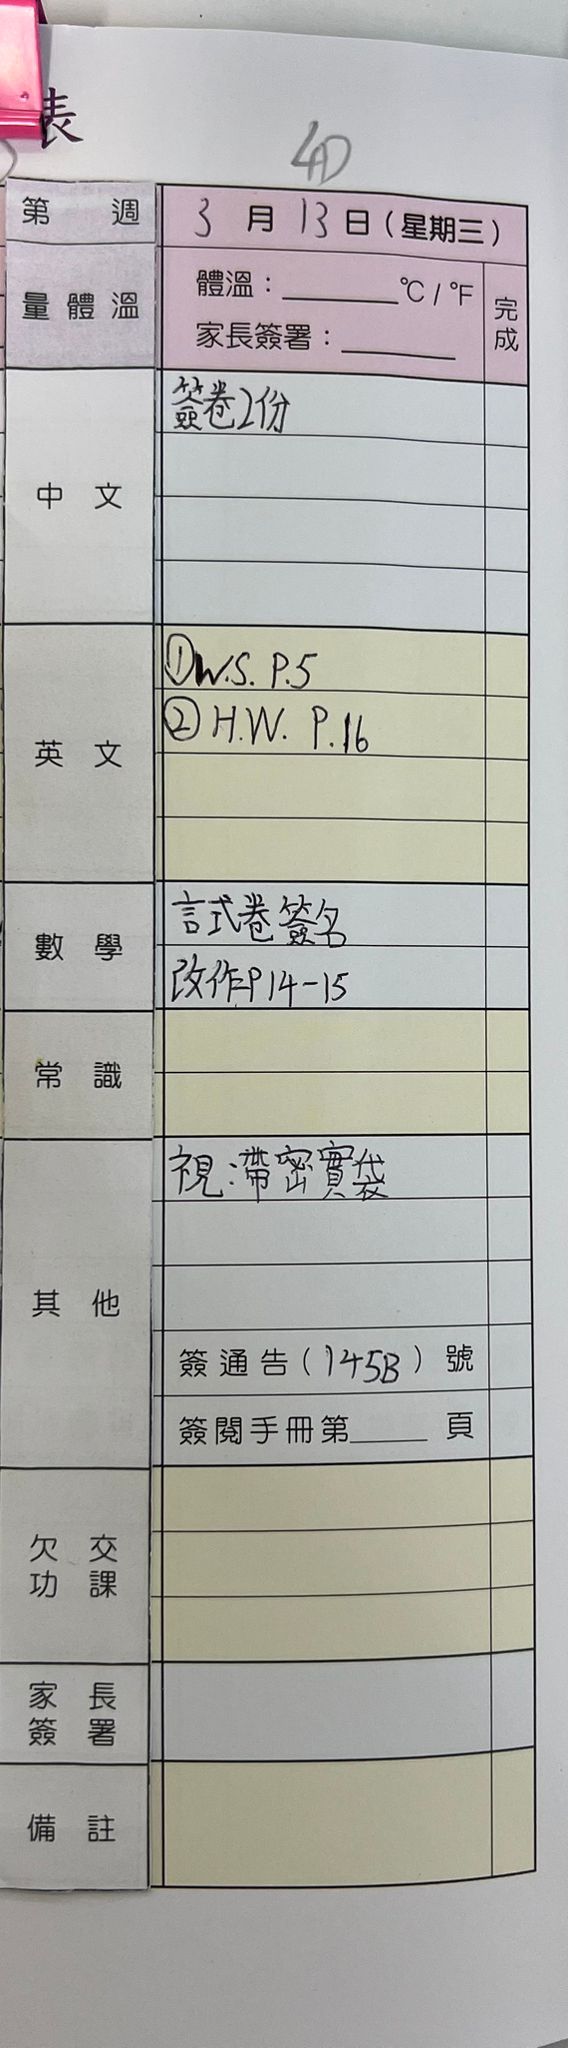 表
4D
第 週 3 月 13 日 (星期三)
量體溫 體溫：______°C / °F 完成
家長簽署：______
中 文 簽卷2份
英 文 ①W.S. P.5
②H.W. P.16
數 學 試卷簽名
改作P14-15
常 識
其 他 視：帶密實袋
簽通告(145B)號
簽閱手冊第____頁
欠 交
功 課
家 長
簽 署
備 註